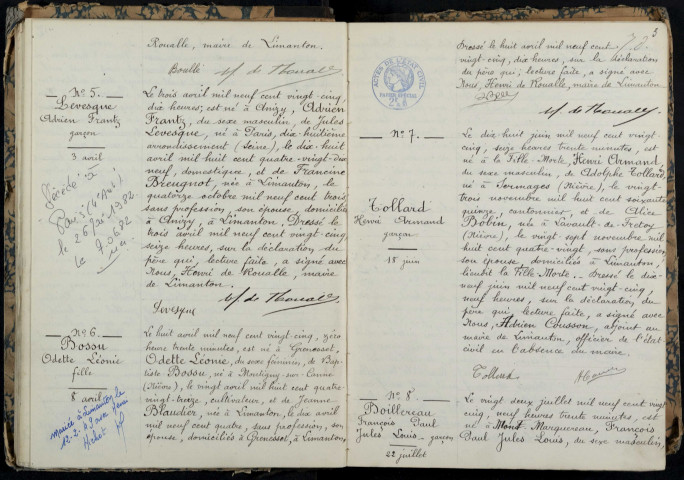 Roualle, maire de Limanton.
Boulle H. de Roualle
N° 5.
Levesque
Adrien Frantz
garçon
3 avril
Décédé à
Paris
le 26 Mai 1982
Le trois avril mil neuf cent vingt-cinq,
dix heures, est né à Anizy, Adrien
Frantz, du sexe masculin, de Jules
Levesque, né à Paris, dix-huitième
arrondissement (Seine), le dix-huit
avril mil huit cent quatre-vingt-dix
neuf, domestique, et de Francine
Breugnot, née à Limanton, le
quatorze octobre mil neuf cent trois,
sans profession, son épouse, domiciliés
à Anizy, à Limanton. Dressé le
trois avril mil neuf cent vingt-cinq
seize heures, sur la déclaration du
père qui, lecture faite, a signé avec
Nous, Henri de Roualle, maire
de Limanton.
H. de Roualle
Levesque
N° 6.
Bossu
Odette Léonie
fille
8 avril
Mariée à Limanton le
12-2-49 avec
Le huit avril mil neuf cent vingt-cinq, zéro
heure trente minutes, est né à Grenessot,
Odette Léonie, du sexe féminin, de Bap-
tiste Bossu, né à Montigny-sur-Canne
(Nièvre), le vingt avril mil huit cent quatre-
vingt-treize, cultivateur, et de Jeanne
Blaudier, née à Limanton, le dix avril
mil neuf cent quatre, sans profession, son
épouse, domiciliés à Grenessot, à Limanton,
5
Dressé le huit avril mil neuf cent
vingt-cinq, dix heures, sur la déclaration
du père qui, lecture faite, a signé avec
Nous, Henri de Roualle, maire de Limanton.
H. de Roualle
ACTES DE L'ÉTAT CIVIL
PAPIER SPÉCIAL
N° 7.
Tollard
Henri Armand
garçon
18 juin
Le dix-huit juin mil neuf cent vingt
cinq, seize heures trente minutes, est
né à la Fille-Morte, Henri Armand,
du sexe masculin, de Adolphe Tollard
né à Sermages (Nièvre), le vingt-
trois novembre mil huit cent soixante
quinze, cantonnier, et de Alice
Bobin, née à Lavault-de-Fretoy
(Nièvre), le vingt sept novembre mil
huit cent quatre vingt, sans profession
son épouse, domiciliés à Limanton,
lieudit la Fille-Morte. Dressé le dix-
neuf juin mil neuf cent vingt-cinq,
neuf heures, sur la déclaration du
père qui, lecture faite, a signé avec
Nous, Adrien Cousson, adjoint au
maire de Limanton, officier de l'état
civil en l'absence du maire.
Tollard
N° 8.
Boillereau
François Paul
Jules Louis garçon
22 juillet
Le vingt deux juillet mil neuf cent vingt
cinq, neuf heures trente minutes, est
né à Mont Marquereau, François
Paul Jules Louis, du sexe masculin,